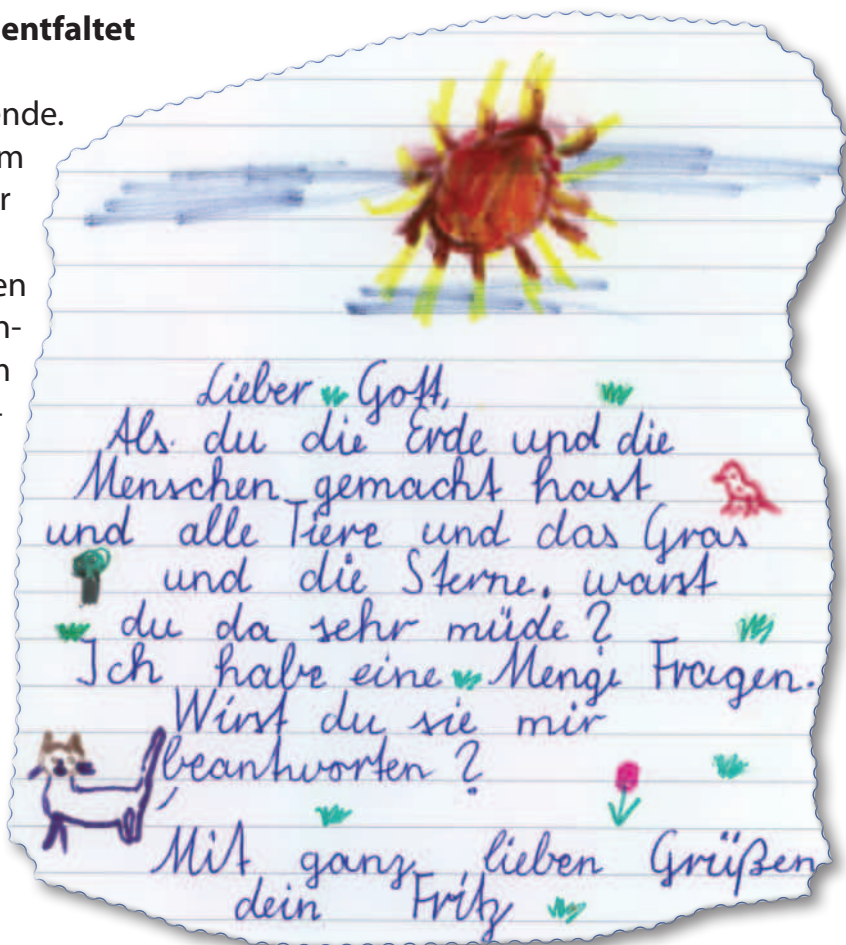 entfaltet
ende.
m
r
en
n-
n
-
Lieber Gott,
Als du die Erde und die
Menschen gemacht hast
und alle Tiere und das Gras
und die Sterne, warst
du da sehr müde?
Ich habe eine Menge Fragen.
Wirst du sie mir
beantworten?
Mit ganz lieben Grüßen
dein Fritz